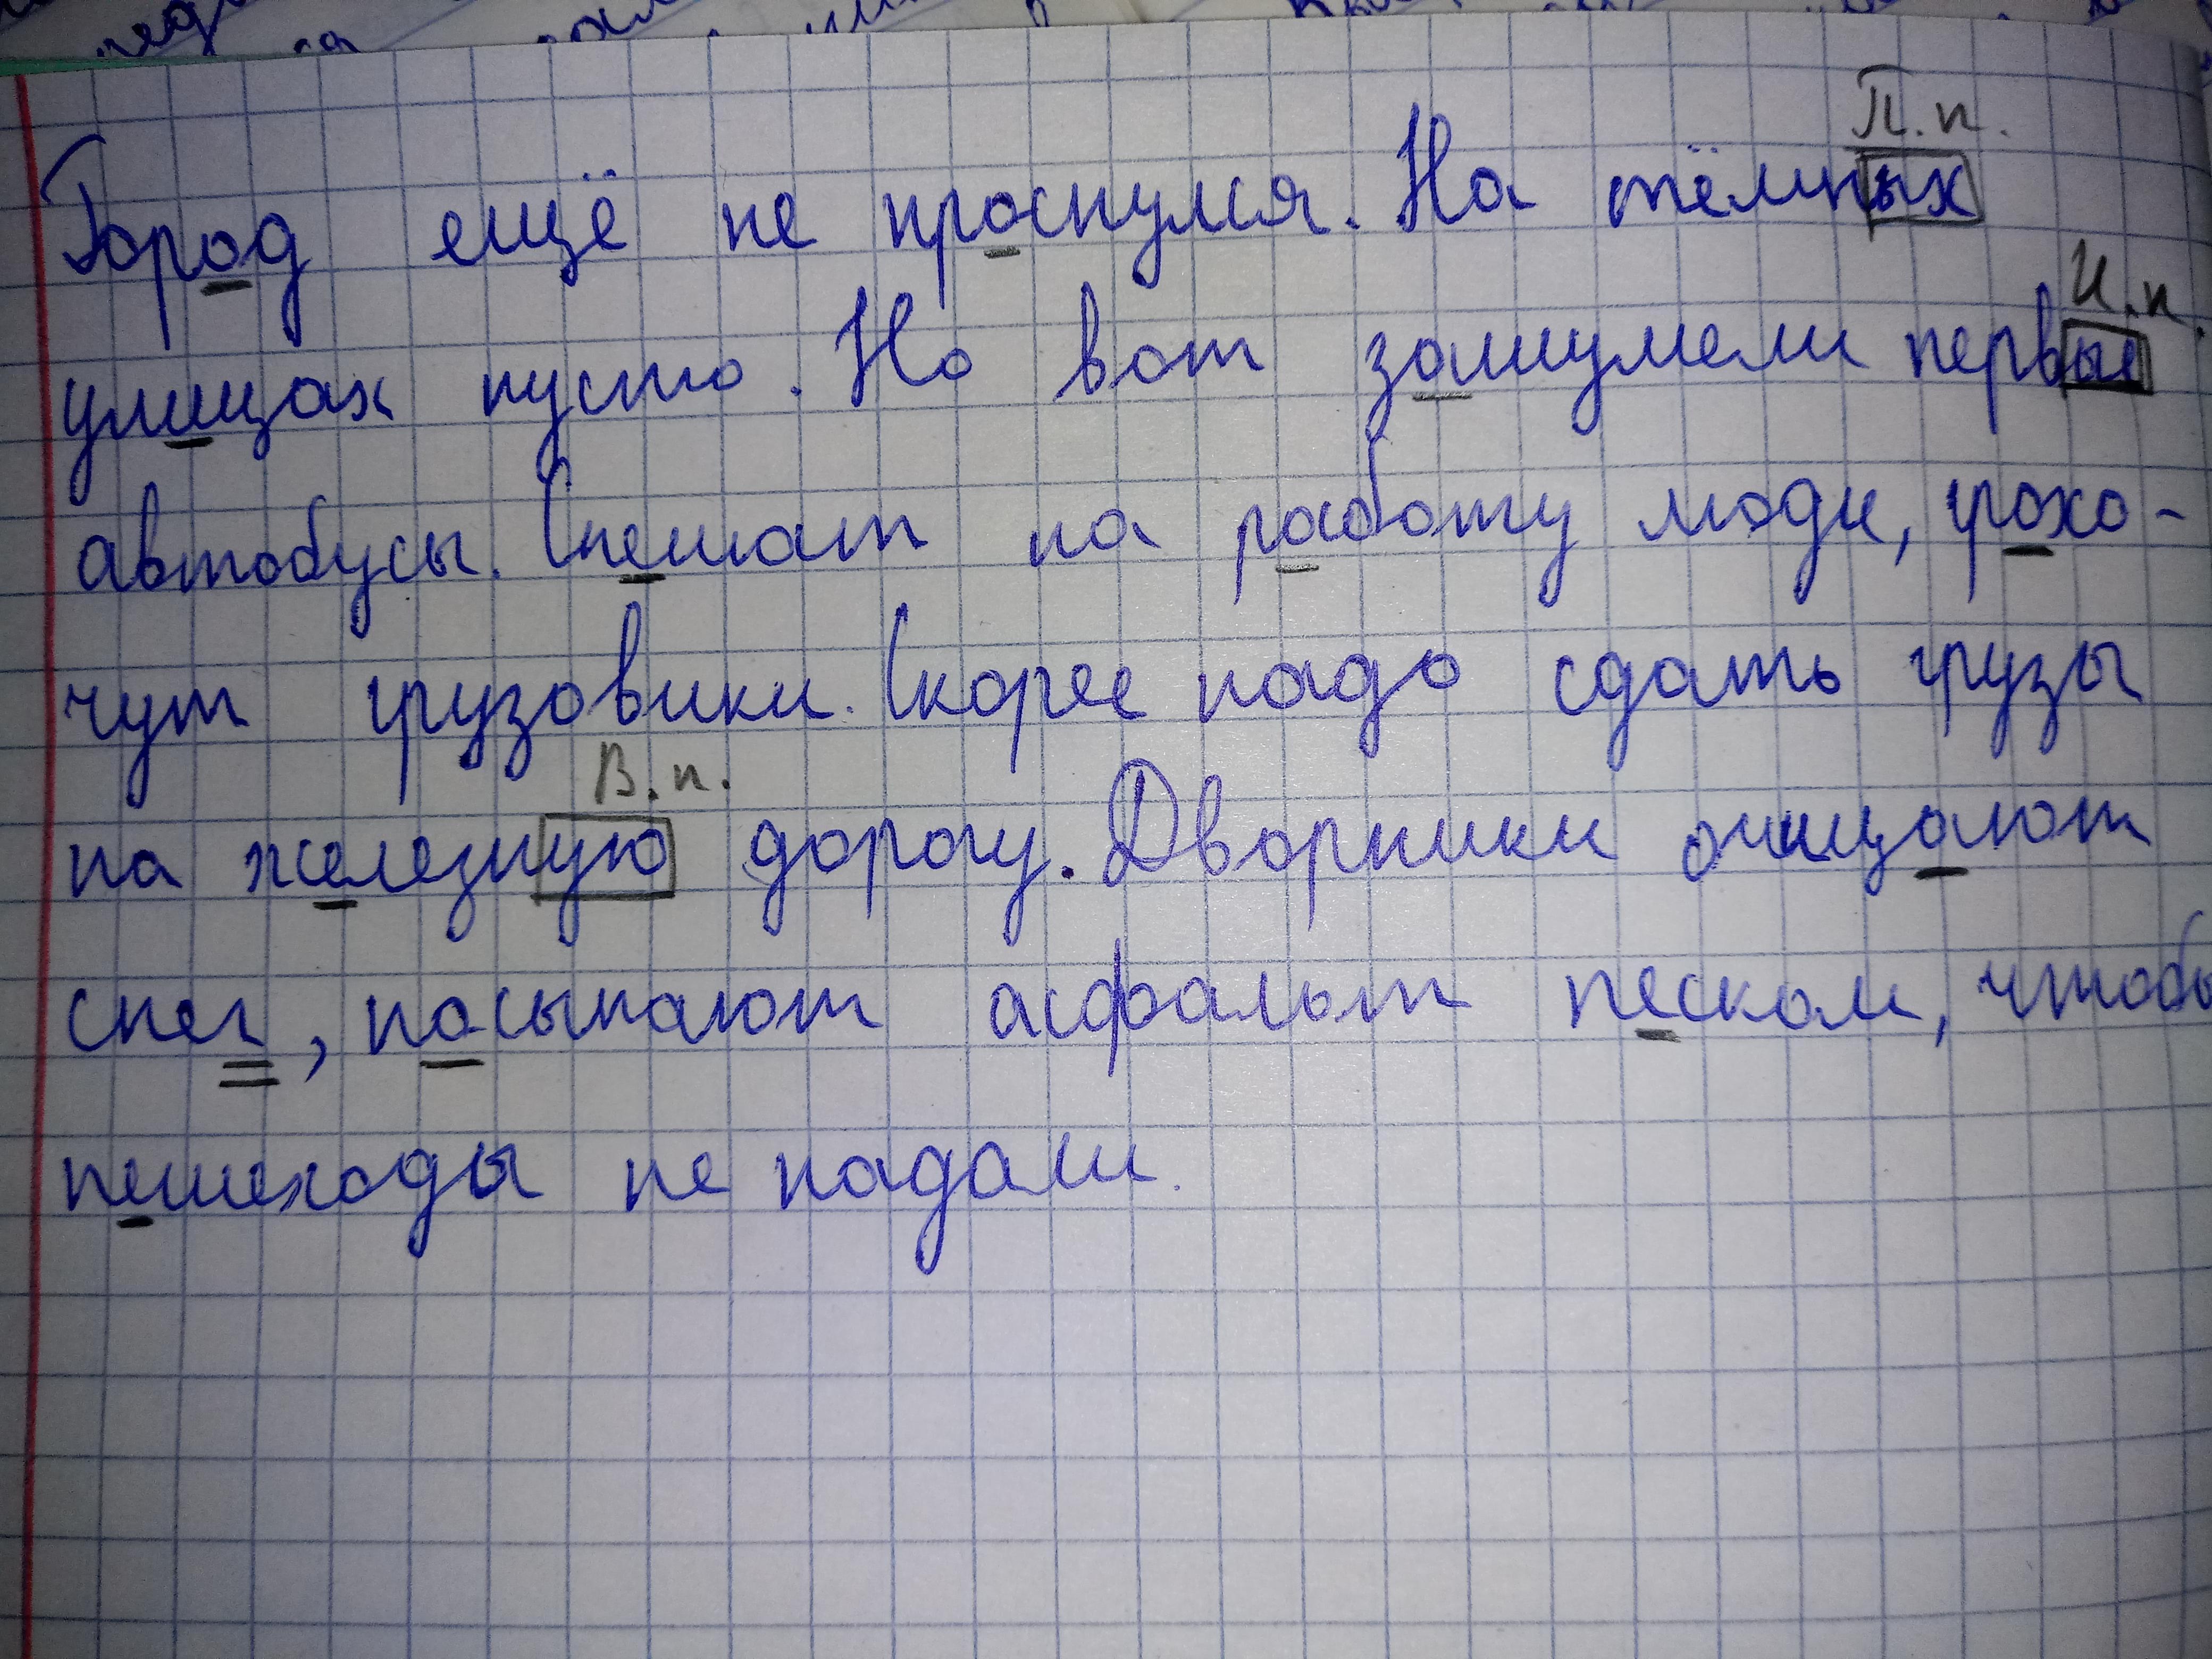 П.п.
Город ещё не проснулся. На тёмных
И.п.
улицах пусто. Но вот зашумели первые
автобусы. Спешат на работу люди, грохо-
чут грузовики. Скорее надо сдать грузы
В.п.
на железную дорогу. Дворники очищают
снег, посыпают асфальт песком, чтобы
пешеходы не падали.